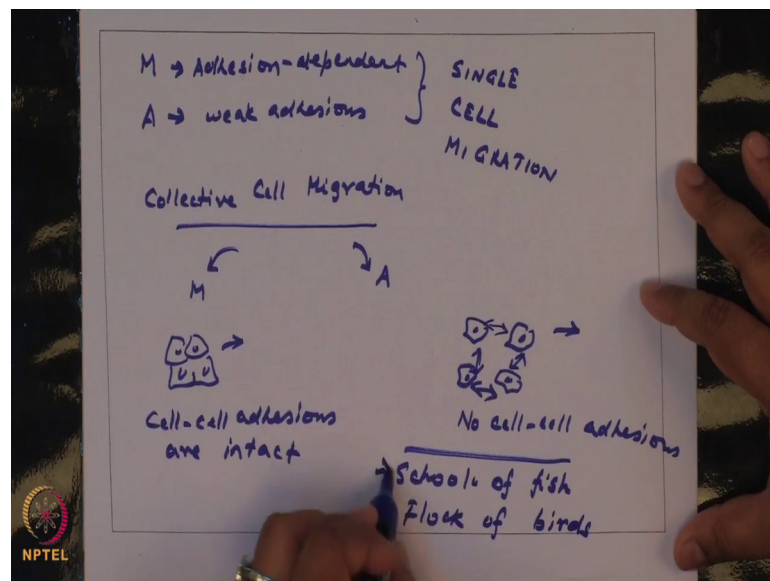 M → Adhesion-dependent } SINGLE
A → weak adhesions CELL
MIGRATION
Collective Cell Migration
M A
Cell-cell adhesions
are intact
No cell-cell adhesions
→ Schools of fish
Flock of birds
NPTEL